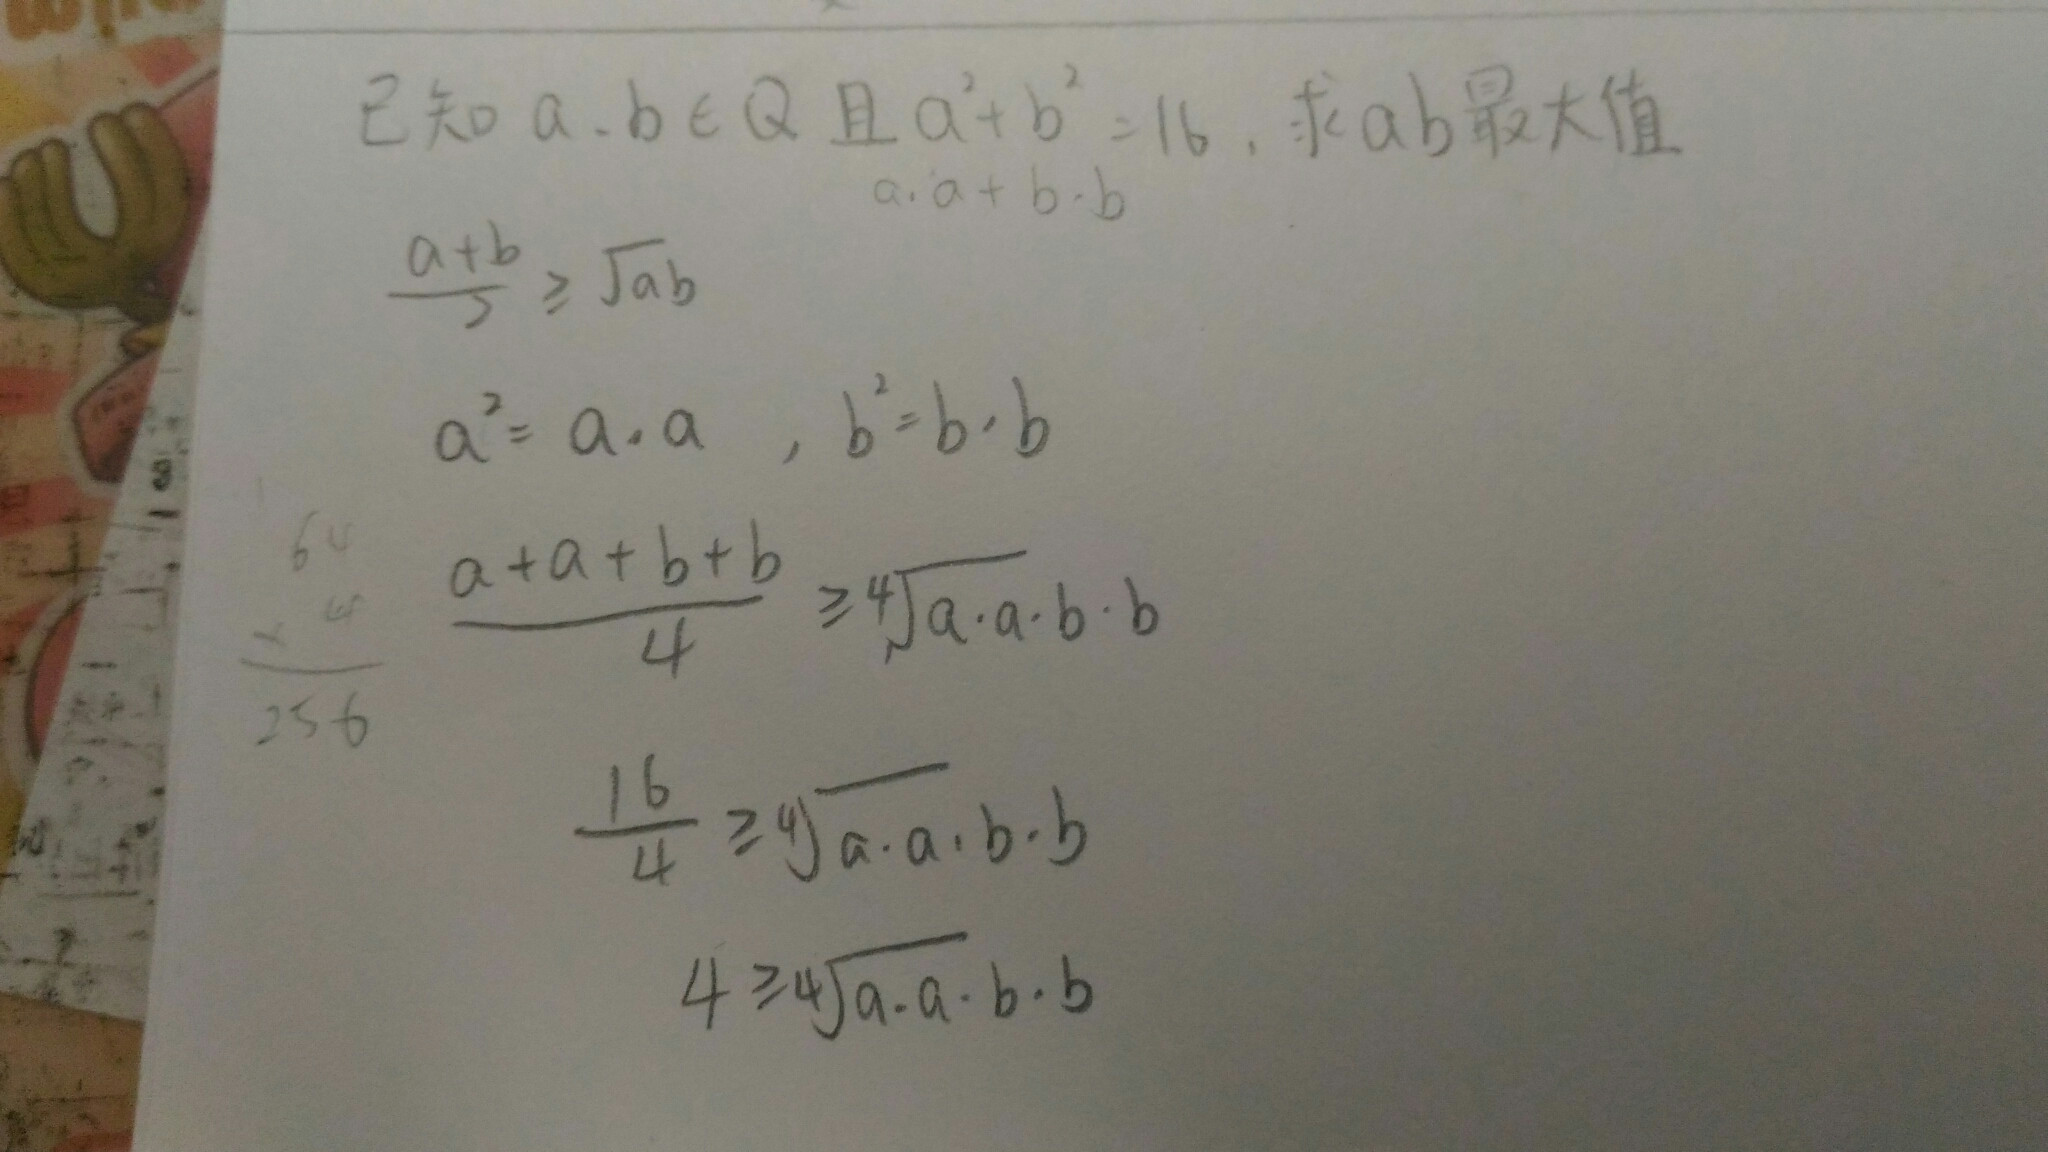 已知 a.b∈Q 且 a²+b²=16，求ab最大值
a.a+b.b
a+b/2 ≥ √ab
a²= a.a , b²=b.b
64
x 4
256
a+a+b+b/4 ≥ ⁴√a.a.b.b
16/4 ≥ ⁴√a.a.b.b
4 ≥ ⁴√a.a.b.b